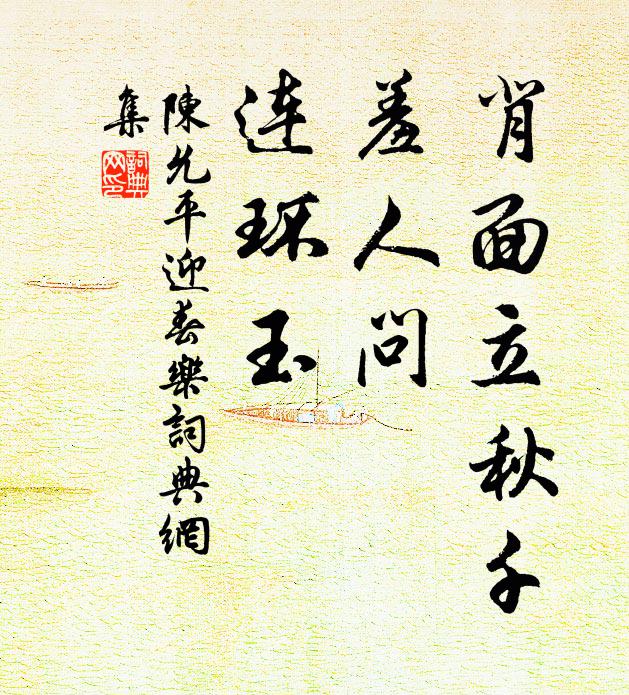 背面立秋千
羞人問
連環玉
陳允平迎春樂詞典網
集
詞典
网印